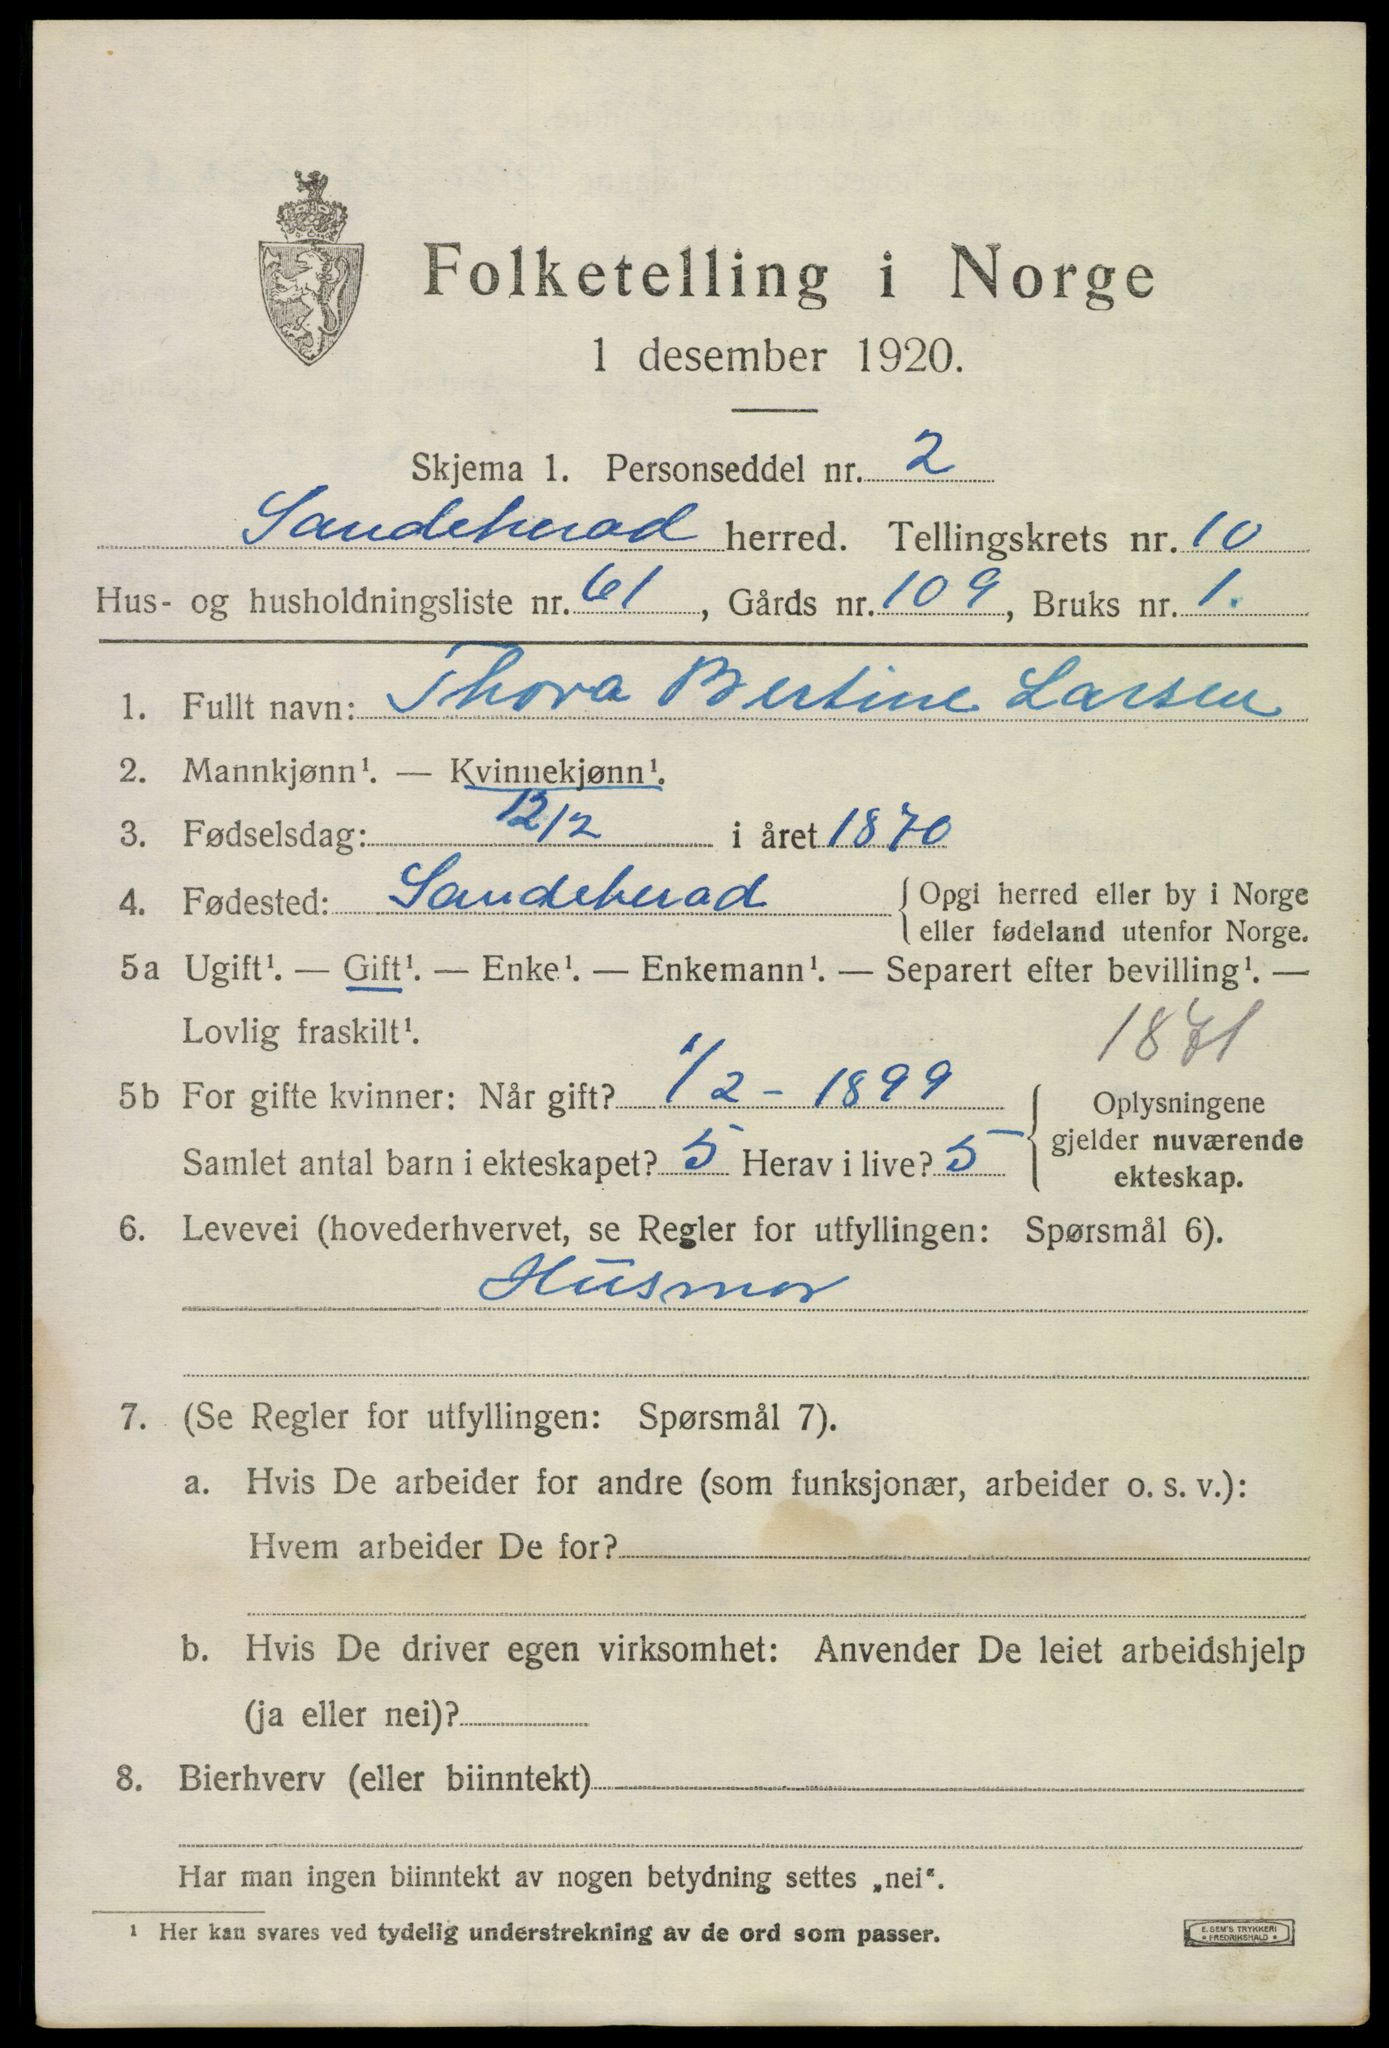 Folketelling i Norge
1 desember 1920.
Skjema 1. Personseddel nr. 2
Sandeherad herred. Tellingskrets nr. 10
Hus- og husholdningsliste nr. 61, Gårds nr. 109, Bruks nr. 1.
1. Fullt navn: Thora Bertine Larsen
2. Mannkjønn¹. — Kvinnekjønn¹.
3. Fødselsdag: 12/2 i året 1870
4. Fødested: Sandeherad { Opgi herred eller by i Norge
eller fødeland utenfor Norge.
5a Ugift¹. — Gift¹. — Enke¹. — Enkemann¹. — Separert efter bevilling¹. —
Lovlig fraskilt¹.
1871
5b For gifte kvinner: Når gift? 1/2 - 1899
Samlet antal barn i ekteskapet? 5 Herav i live? 5
Oplysningene
gjelder nuværende
ekteskap.
6. Levevei (hovederhvervet, se Regler for utfyllingen: Spørsmål 6).
Husmor
7. (Se Regler for utfyllingen: Spørsmål 7).
a. Hvis De arbeider for andre (som funksjonær, arbeider o. s. v.):
Hvem arbeider De for?
b. Hvis De driver egen virksomhet: Anvender De leiet arbeidshjelp
(ja eller nei)?
8. Bierhverv (eller biinntekt)
Har man ingen biinntekt av nogen betydning settes „nei“.
¹ Her kan svares ved tydelig understrekning av de ord som passer.
E. SEM'S TRYKKERI
* FREDRIKSHALD *